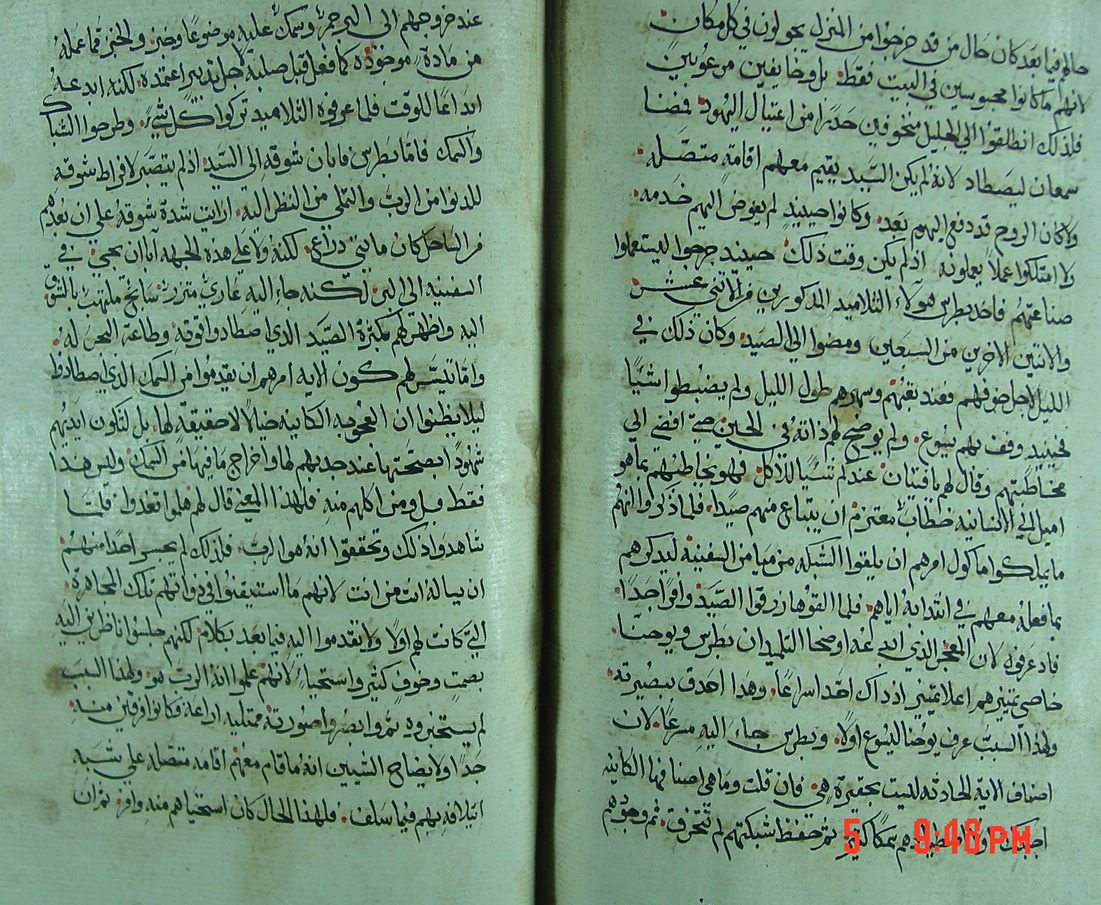 حالهم فيما بعد كان حال من قد خرجوا من النزل يجولون في كل مكان
لانهم ما كانوا محبوسين في البيت فقط. بل وخايفين مرعوبين
فلذلك انطلقوا الي الجليل متخوفين حذرا من اغتيال اليهود. فمضا
سمعان ليصطاد لانه لم يكن السيد يقيم معهم اقامة متصله.
ولا كان الروح قد دفع اليهم بعد. وكانوا حينيد لم يفوض اليهم خدمه.
ولا امتلكوا عملا يعملونه اذ لم يكن وقت ذلك حينيد خرجوا ليستعملوا
صناعتهم فاخد بطرس هولاء التلاميد المدكورين من الاثني عشر
والاثنين الاخرين من السبعين ومضوا الي الصيد. وكان ذلك في
الليل لاجل خوفهم. فعند تعبهم وسهرهم طول الليل ولم يضبطوا شيا
فحينيد وقف بهم يسوع. ولم يوضح لهم ذاته في الحين حتي افضي الي
مخاطبتهم وقال لهم يا فتيان عندكم شيا للاكل. فهو يخاطبهم بما هو
اميل الي الانسانيه خطاب معتزم ان يبتاع منهم صيدا. فلما ذكروا انهم
ما يملكوا ماكول امرهم ان يلقوا الشبكه من ميامن السفينه ليدكرهم
بما فعله معهم في ابتدايه اياهم. فلما القوها رزقوا الصيد وافرا جدا.
فاد عرفوه لان العجز الذي ابدعه اوضحا التلميدان بطرس ويوحنا.
خاصتي تميزهم اعلا تميز اذ ذاك احد اسراعا. وهذا احدق تبصرته.
ولهذا السبب عرف يوحنا ليسوع اولا. وبطرس جاء اليه مسرعا. لان
اصناف الاية الحادثه ليست بحقيرة هي. فان قلت وما هي اصنافها الكاينه
اجبتك اولا تصييدهم سمكا كثيرا ثم حفظ شبكتهم لم تتخرق. ثم وجودهم
عند خروجهم الي البر جمر وسمك عليه موضوعا وخبز والخبز فما عمله
من مادة موجوده كما فعل قبل صلبه لاجل تدبير اعتمده. لكنه ابدعه
ابداعا للوقت فلما عرفوه التلاميد تركوا كل شي. وطرحوا الشباك
والسمك فاما بطرس فابان شوقه الي السيد اذ لم يتصبر لافراط شوقه
للدنوا من الرب والتملي من النظر اليه. ارايت شدة شوقه علي ان بعدهم
من الساحل كان مايتي دراع. لكنه ولا علي هذه الجهه ابا ان يجي في
السفينه الي البر. لكنه جاء اليه عاري متزر سابح ملتهب بالشوق
اليه واظهر لهم بكثرة الصيد الذي اصطادوا قوته وطاعة البحر له.
واما تيسرهم كون الايه امرهم ان يقدموا من السمك الذي اصطادوا
ليلا يظنوا ان العجوبه الكاينه خيالا لا حقيقة لها. بل لتكون ايديهم
شهودا بصحتها عند جدبهم لها واخراج ما فيها من السمك وليس هذا
فقط بل ومن اكلهم منه. فلهذا المعني قال لهم هلموا تغدوا فلما
شاهدوا ذلك وتحققوا انه هو الرب. فلذلك لم يجسر احدا منهم
ان يساله انت من انت لانهم ما استيقنوا في ذواتهم تلك المجاهرة.
التي كانت لهم اولا ولا تقدموا اليه فيما بعد بكلام لكنهم جلسوا ناظرين اليه
بصمت وخوف كثير واستحيا. لانهم علموا انه الرب هو. ولهذا السبب
لم يستخبروه ثم وابصروا صورته ممتليه اراعة فكانوا فرقين منه.
جدا ولايضاح التبيين انه ما قام معهم اقامة متصله علي شبه
ايتلافه بهم فيما سلف. فلهذا الحال كان استحياهم منه وافر ثم ان
5 9:48 PM